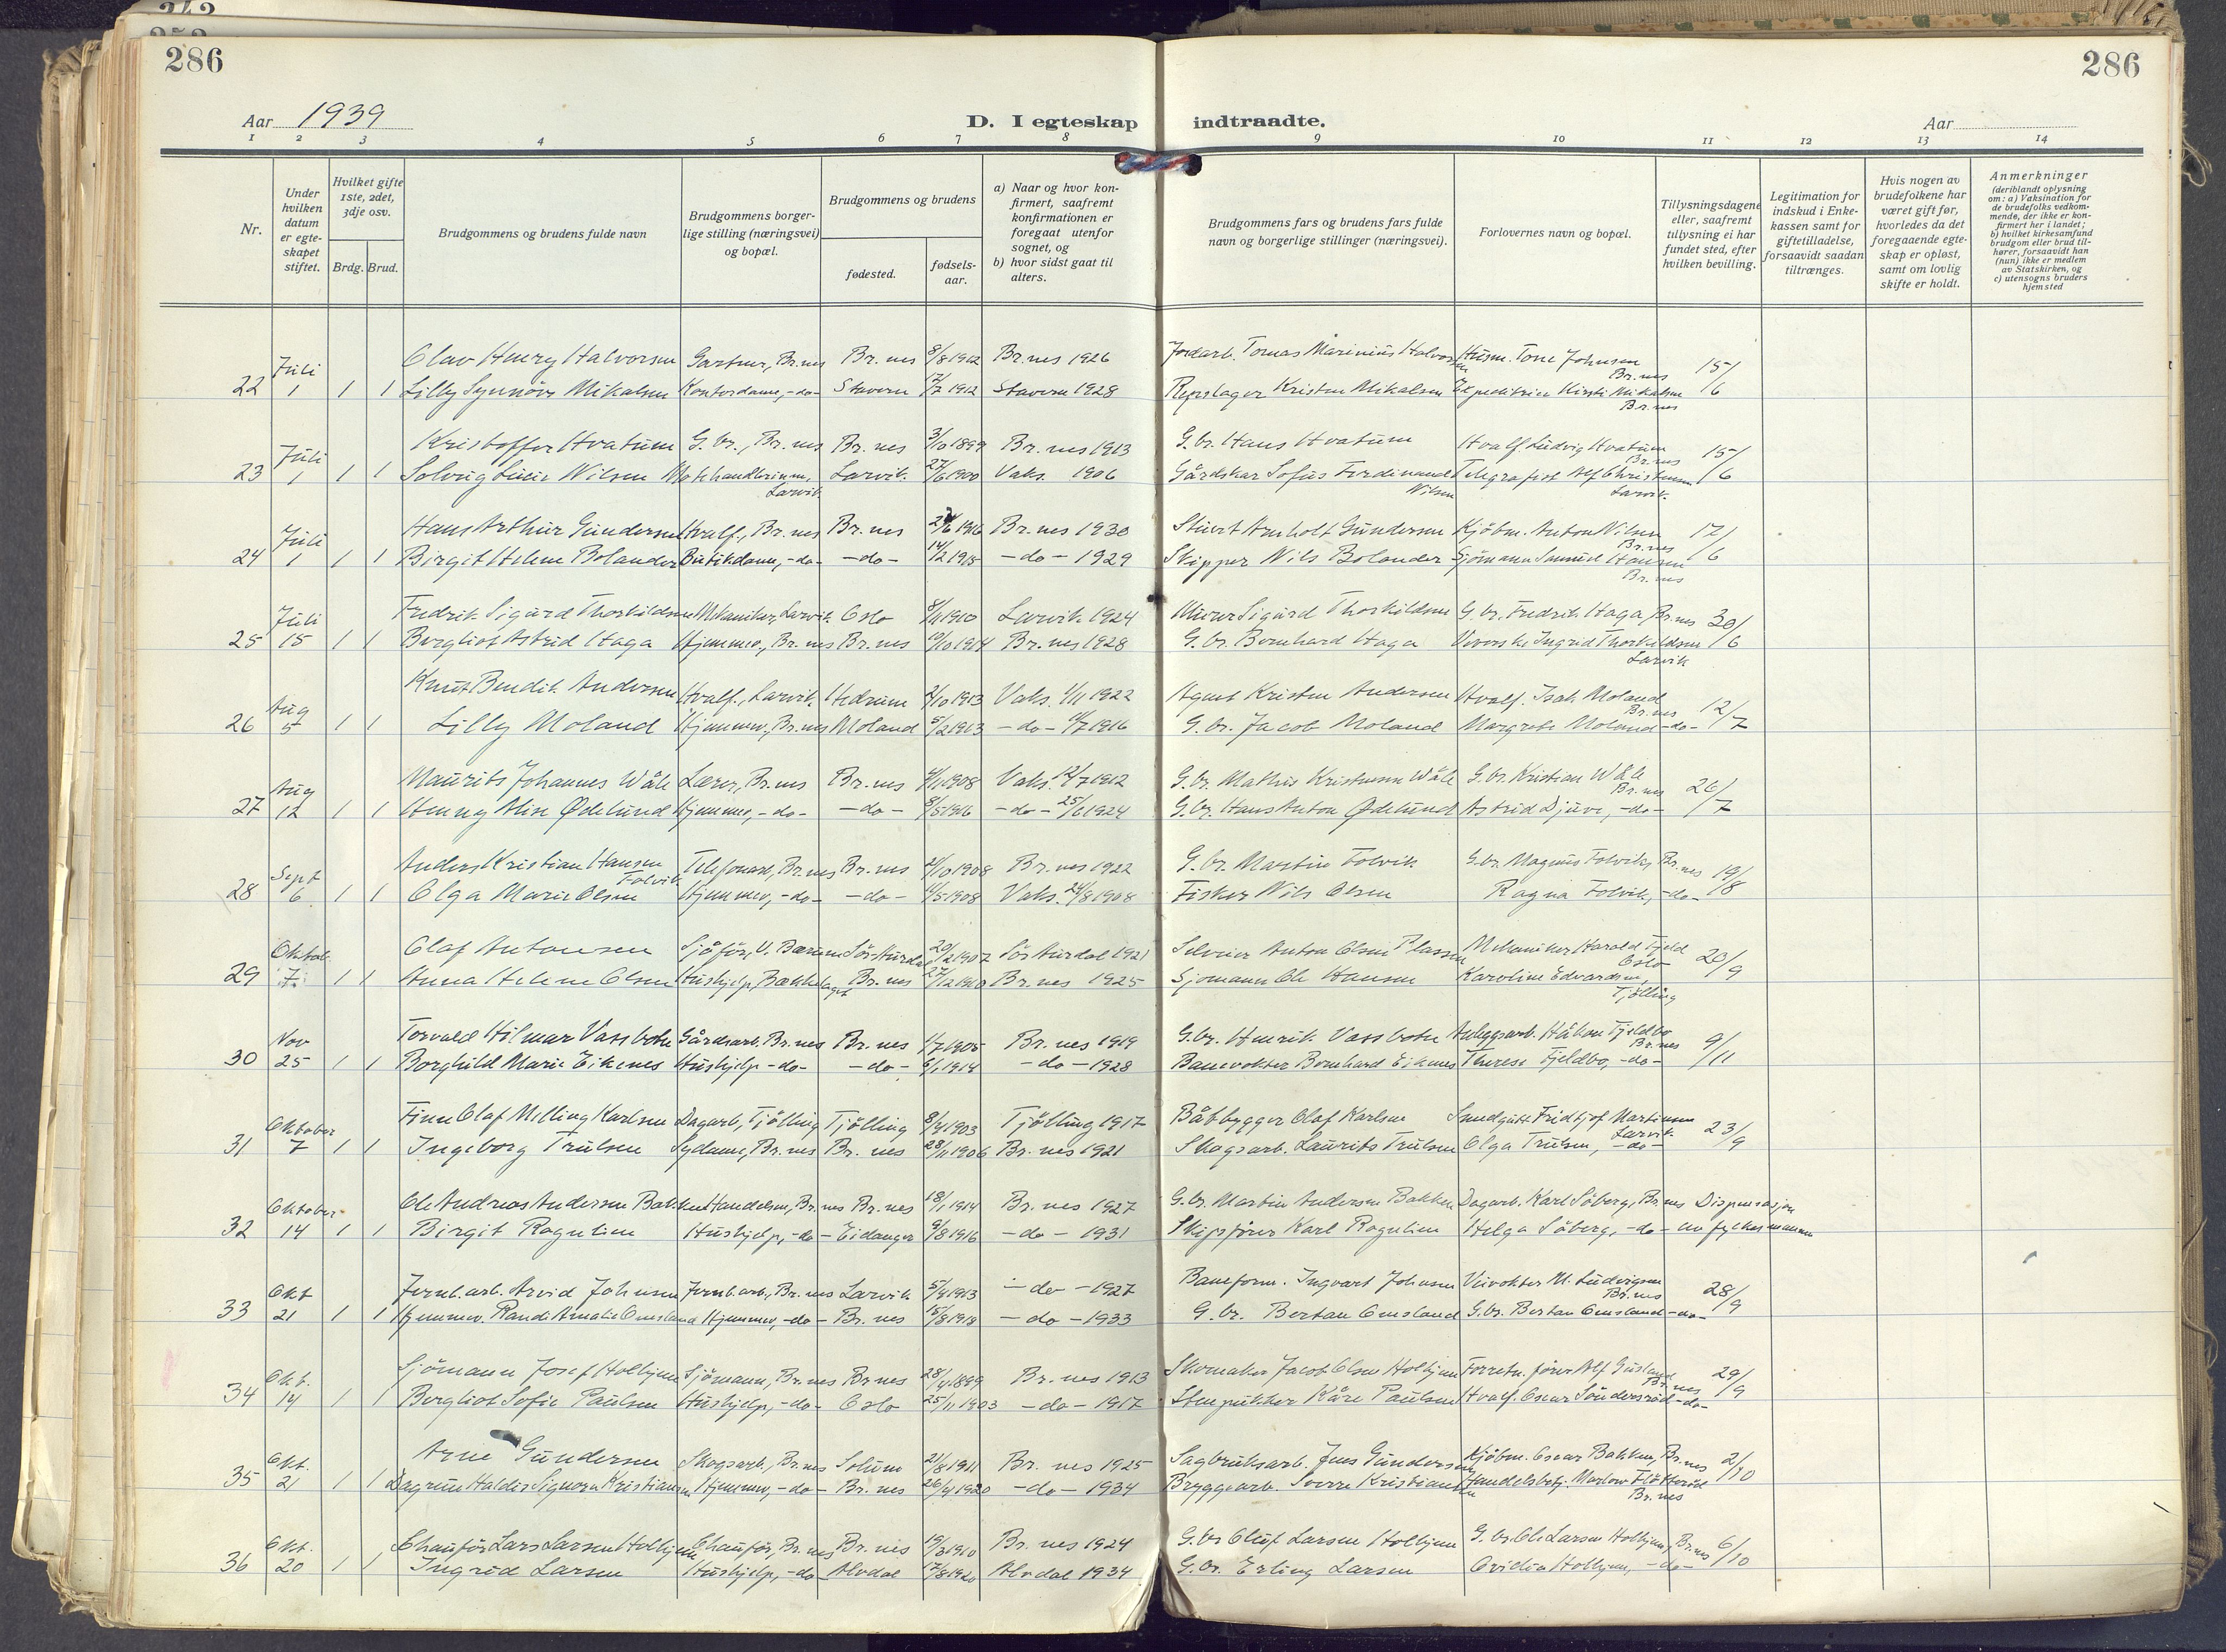 286
286
Aar 1939
D. I egteskap indtraadte.
Aar
1 2 3 4 5 6 7 8 9 10 11 12 13 14
Nr.
Under hvilken datum er egteskapet stiftet.
Hvilket gifte 1ste, 2det, 3dje osv.
Brdg. Brud.
Brudgommens og brudens fulde navn
Brudgommens borgerlige stilling (næringsvei) og bopæl.
Brudgommens og brudens
fødested.
fødsels-aar.
a) Naar og hvor konfirmert, saafremt konfirmationen er foregaat utenfor sognet, og
b) hvor sidst gaat til alters.
Brudgommens fars og brudens fars fulde navn og borgerlige stillinger (næringsvei).
Forlovernes navn og bopæl.
Tillysningsdagene eller, saafremt tillysning ei har fundet sted, efter hvilken bevilling.
Legitimation for indskud i Enkekassen samt for giftetilladelse, forsaavidt saadan tiltrænges.
Hvis nogen av brudefolkene har været gift før, hvorledes da det foregaaende egteskap er opløst, samt om lovlig skifte er holdt.
Anmerkninger
(deriblandt oplysning om: a) Vaksination for de brudefolks vedkommende, der ikke er konfirmert her i landet; b) hvilket kirkesamfund brudgom eller brud tilhører, forsaavidt han (hun) ikke er medlem av Statskirken, og c) utensogns bruders hjemsted
Juli Olav Henry Halvorsen Gartner, Br.nes Br.nes 8/8 1912 Br.nes 1926 Jordarb. Tomas Marinius Halvorsen Husm. Tone Johnsen Br.nes 15/6
22 1 1 1 Lilly Synnöve Mikalsen Kontordame, -do- Stavern 1912 Stavern 1928 Repslager Kristen Mikalsen Expeditrice Kirsti Mikalsen Br.nes
Juli Kristoffer Hvatum G.br., Br.nes Br.nes 3/10 1899 Br.nes 1913 G.br. Hans Hvatum Hvalf. Ludvig Hvatum Br.nes 15/6
23 1 1 1 Solveig Lucie Nilsen Motehandlerinne, Larvik Larvik 27/6 1900 Vaks. 1906 Gårdskar Sofus Ferdinand Nilsen Telegrafist Alf Christensen Larvik
Juli Hans Arthur Gundersen Hvalf., Br.nes Br.nes 1916 Br.nes 1930 Stuert Arnholt Gundersen Kjöbm. Anton Nilsen Br.nes 17/6
24 1 1 1 Birgit Helene Bolander Butikdame, -do- -do- 14/2 1915 -do- 1929 Skipper Nils Bolander Sjömann Samuel Hansen Br.nes
Juli Fredrik Sigurd Thorkildsen Mekaniker, Larvik Oslo 8/11 1910 Larvik 1924 Murer Sigurd Thorkildsen G.br. Fredrik Haga Br.nes 30/6
25 15 1 1 Bergliot Astrid Haga Hjemmev., Br.nes Br.nes 19/10 1914 Br.nes 1928 G.br. Bernhard Haga Veverske Ingrid Thorkildsen Larvik
Aug Knut Bendik Andersen Hvalf., Larvik Hedrum 2/10 1913 Vaks. 1/11 1922 Agent Kristen Andersen Hvalf. Isak Moland Br.nes 12/7
26 5 1 1 Lilly Moland Hjemmev., Br.nes Moland 5/2 1913 -do- 1916 G.br. Jacob Moland Margrete Moland -do-
Aug Maurits Johannes Wåle Lærer, Br.nes Br.nes 1908 Vaks. 12/7 1912 G.br. Mathis Kristensen Wåle G.br. Kristian Wåle Br.nes 26/7
27 12 1 1 Henny Alise Ødelund Hjemmev., -do- -do- 8/5 1916 -do- 25/6 1924 G.br. Hans Anton Ødelund Astrid Djuve, -do-
Sept Anders Kristian Hansen Folvik Telefonarb., Br.nes Br.nes 2/10 1908 Br.nes 1922 G.br. Martin Folvik G.br. Magnus Folvik, Br.nes 19/8
28 6 1 1 Olga Marie Olsen Hjemmev., -do- -do- 1908 Vaks. 24/8 1908 Fisker Nils Olsen Ragna Folvik, -do-
Oktob. Olaf Antonsen Sjåför, V. Bærum Sör-Aurdal 20/2 1907 Sör Aurdal 1921 Selveier Anton Olsen Plassen Mekaniker Harald Fjeld Oslo 20/9
29 7 1 1 Anna Helene Olsen Hushjelp, Bækkelaget Br.nes 27/12 1910 Br.nes 1925 Sjomann Ole Hansen Karoline Edvardsen, Tjölling
Nov Torvald Hilmar Vassbotn Gårdsarb. Br.nes Br.nes 1/7 1905 Br.nes 1919 G.br. Henrik Vassbotn Anleggsarb. Håkon Fjeldbo Br.nes 9/11
30 25 1 1 Borghild Marie Eikenes Hushjelp -do- -do- 6/1 1914 -do- 1928 Banevokter Bernhard Eikenes Therese Fjeldbo, -do-
Oktober Finn Olaf Melling Karlsen Dagarb., Tjölling Tjölling 8/4 1903 Tjölling 1917 Båtbygger Olaf Karlsen Smedgutt Fridtjof Martinsen Larvik 23/9
31 7 1 1 Ingeborg Trulsen Sydame, Br.nes Br.nes 28/11 1906 Br.nes 1921 Skogsarb. Laurits Trulsen Olga Trulsen, -do-
Oktober Ole Andreas Andersen Bakken Handelsm., Br.nes Br.nes 18/1 1914 Br.nes 1927 G.br. Martin Andersen Bakken Dagarb. Karl Söberg, Br.nes Dispensasjon
32 14 1 1 Birgit Rogulin Hushjelp, -do- Eidanger 9/8 1916 -do- 1931 Skipsfører Karl Rogulin Helga Söberg, -do- av fylkesmannen
Okt Jernb.arb. Arvid Johnsen Jernb.arb., Br.nes Larvik 5/4 1913 -do- 1927 Baneform. Ingvart Johnsen Veivokter M. Ludvigsen Br.nes 28/9
33 21 1 1 Hjemmev. Randi Amalie Omsland Hjemmev., -do- Br.nes 15/8 1918 -do- 1933 G.br. Bertan Omsland G.br. Bertan Omsland -do-
Okt. Sjömann Josef Holbjem Sjömann, Br.nes Br.nes 28/4 1899 Br.nes 1913 Skomaker Jacob Olsen Holhjem Forretn.fører Alf Gusland Br.nes 29/9
34 14 1 1 Bergliot Sofie Paulsen Hushjelp, -do- Oslo 25/11 1903 -do- 1917 Stenpukker Kåre Paulsen Hvalf. Oscar Söndersröd -do-
Okt. Arne Gundersen Skogsarb., Br.nes Solum 21/8 1911 Br.nes 1925 Sagbruksarb. Jens Gundersen Kjöbm. Oscar Bakken, Br.nes 2/10
35 21 1 1 Dagrun Haldis Signora Kristiansen Hjemmev., -do- Br.nes 26/4 1920 -do- 1934 Bryggearb. Sverre Kristiansen Handelsbetj. Br.nes
Okt. Chauför Lars Larsen Holhjem Chauför, Br.nes Br.nes 19/3 1910 Br.nes 1924 G.br Oluf Larsen Holhjem G.br. Ole Larsen Holhjem, Br.nes 6/10
36 20 1 1 Ingrid Larsen Hushjelp, -do- Alvdal 17/8 1920 Alvdal 1934 G.br. Erling Larsen Ovidia Holhjem, -do-